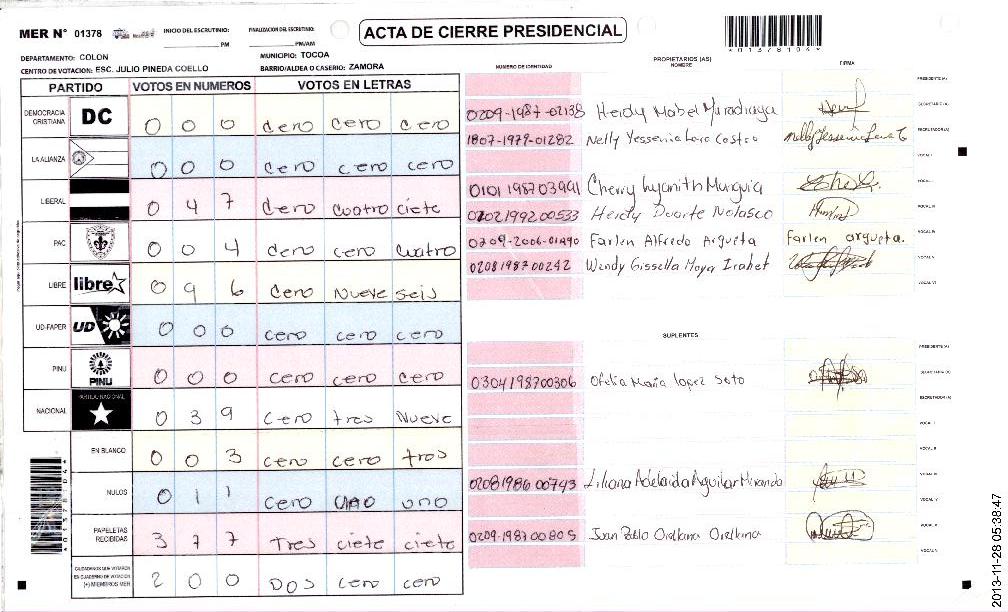 MER N° 01378 INICIO DEL ESCRUTINIO: PM FINALIZACION DEL ESCRUTINIO: PM/AM
ACTA DE CIERRE PRESIDENCIAL
*01378104*
DEPARTAMENTO: COLON MUNICIPIO: TOCOA
CENTRO DE VOTACION: ESC. JULIO PINEDA COELLO BARRIO/ALDEA O CASERIO: ZAMORA
PARTIDO VOTOS EN NUMEROS VOTOS EN LETRAS
DEMOCRACIA CRISTIANA DC 0 0 0 cero cero cero
LA ALIANZA 0 0 0 cero cero cero
LIBERAL 0 4 7 cero cuatro ciete
PAC 0 0 4 cero cero cuatro
LIBRE libre 0 9 6 cero Nueve seis
UD-FAPER UD 0 0 0 cero cero cero
PINU PINU 0 0 0 cero cero cero
NACIONAL PARTIDO NACIONAL 0 3 9 cero tres Nueve
EN BLANCO 0 0 3 cero cero tres
NULOS 0 1 1 cero uno uno
PAPELETAS RECIBIDAS 3 7 7 Tres ciete ciete
CIUDADANOS QUE VOTARON EN CUADERNO DE VOTACION (+) MIEMBROS MER 2 0 0 DOS cero cero
*01378104*
NUMERO DE IDENTIDAD PROPIETARIOS (AS) NOMBRE FIRMA
PRESIDENTE (A)
0209-1987-02138 SECRETARIO (A)
1807-1979-01282 Nelly Yessenia Lara Castro Nelly Yessenia Lara C ESCRUTADOR (A)
VOCAL I
0101 1987 03991 Cherry Lyanith Murguia VOCAL II
0202199200533 Heidy Duarte Nolasco VOCAL III
0209-2006-01490 Farlen Alfredo Argueta farlen argueta. VOCAL IV
0208198700242 Wendy Gissella Moya VOCAL V
VOCAL VI
SUPLENTES
PRESIDENTE (A)
0304198700306 Ofelia Maria Lopez Soto SECRETARIO (A)
ESCRUTADOR (A)
VOCAL I
VOCAL II
0208198600743 Liliana Adelaida Aguilar Miranda VOCAL III
VOCAL IV
0209-198700805 Juan Pablo Orellana Orellana VOCAL V
VOCAL VI
2013-11-28 05:38:47